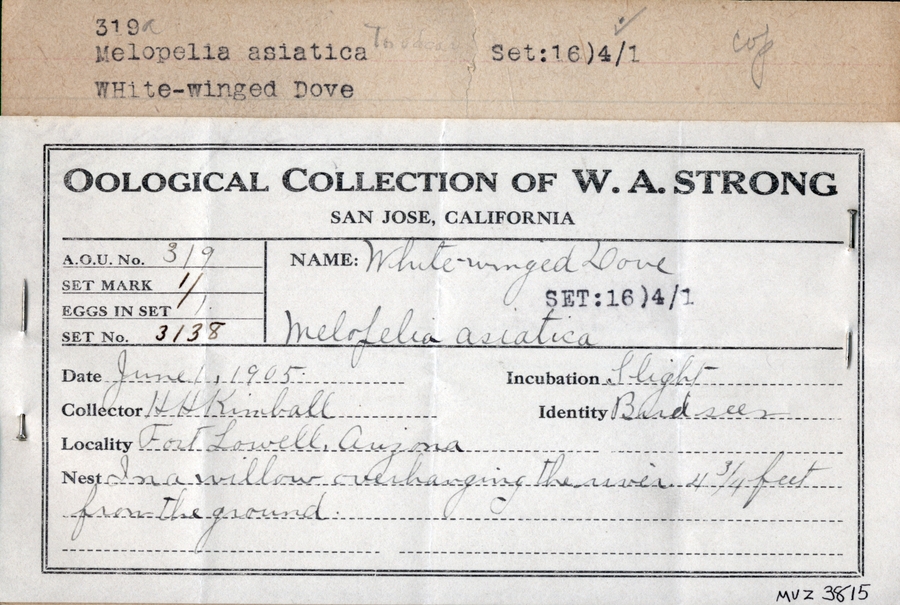 319a
Melopelia asiatica Set:16)4/1 cop
WHite-winged Dove
OOLOGICAL COLLECTION OF W. A. STRONG
SAN JOSE, CALIFORNIA
A.O.U. No. 319 NAME: White-winged Dove
SET MARK 1/1
SET:16)4/1
EGGS IN SET 1
SET No. 3138 Melopelia asiatica
Date June 1, 1905. Incubation Slight
Collector H H Kimball Identity Bird seen
Locality Fort Lowell, Arizona
Nest In a willow overhanging the river 4 3/4 feet
from the ground.
MVZ 3815